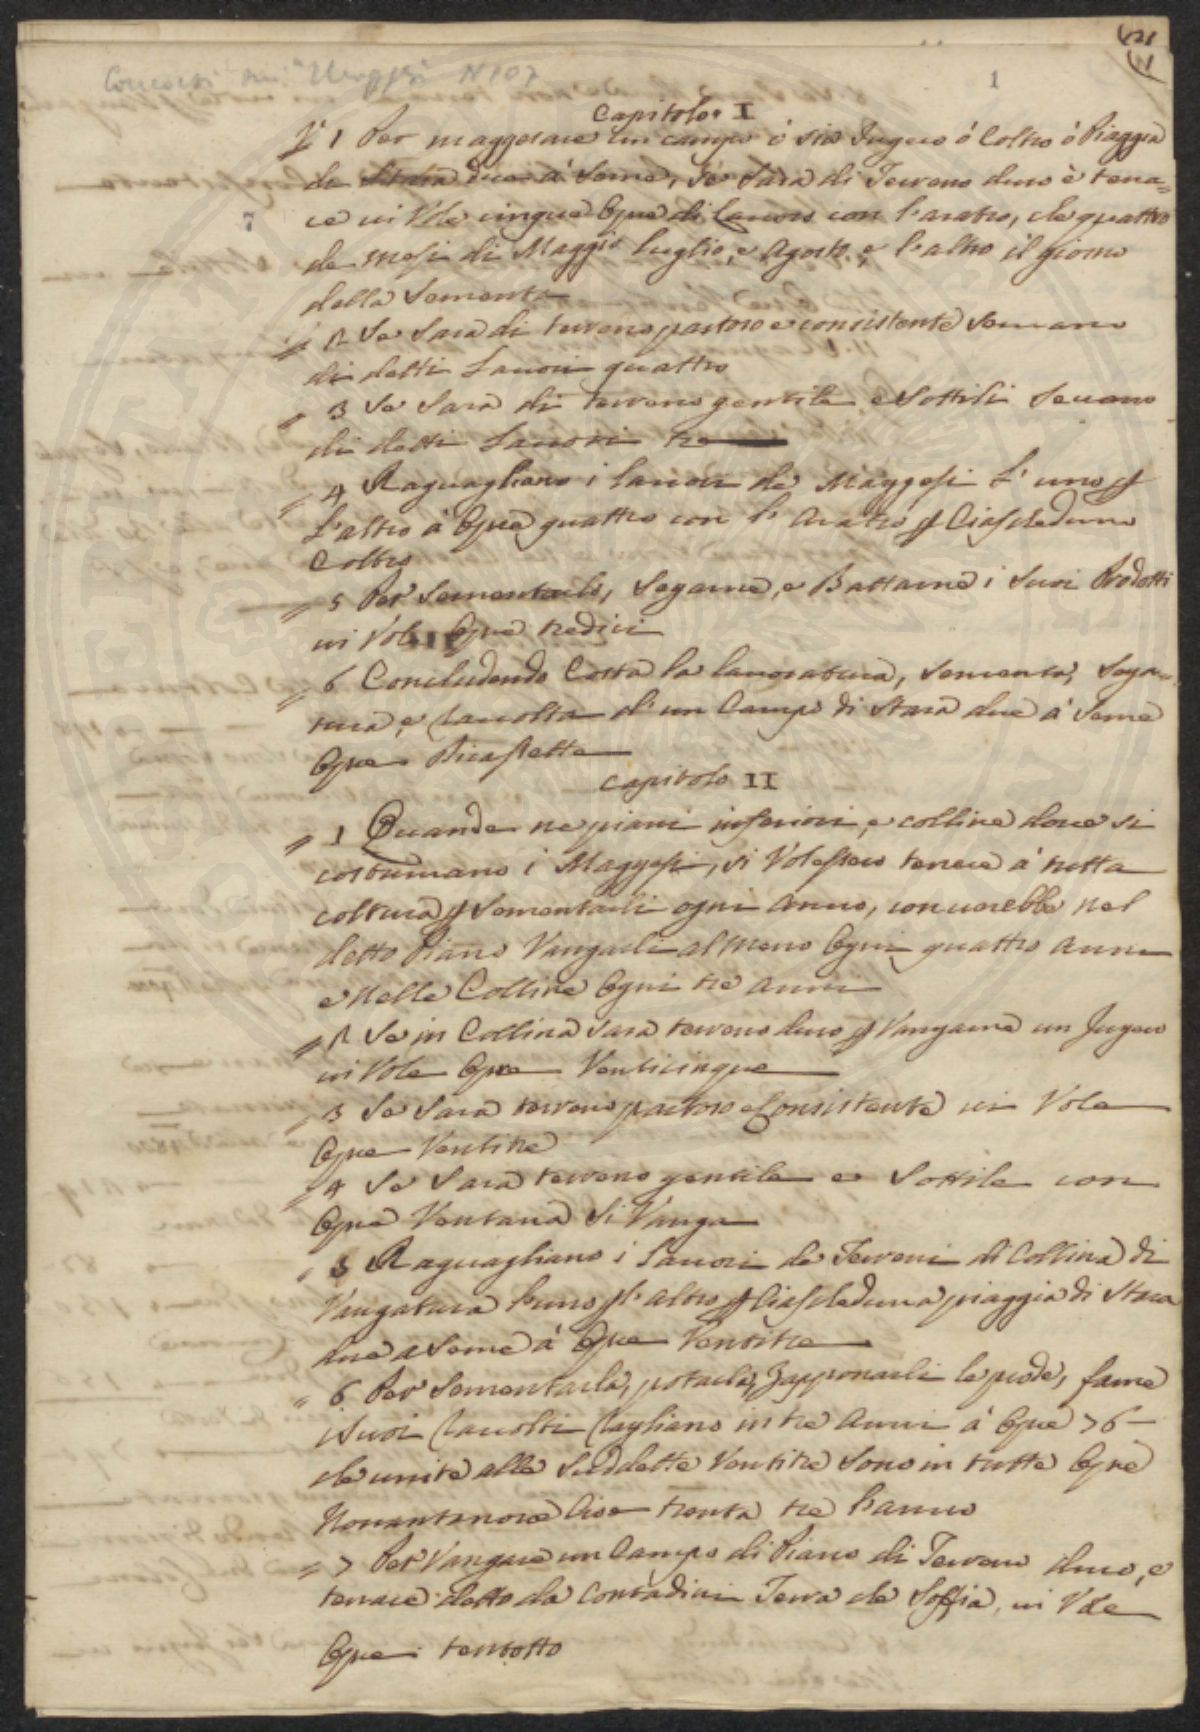 1
7
Capitolo I
1 Per maggesare un campo ò sia Jugero ò Coltro ò Piaggia
di Staia due à Seme, se Sarà di Terreno duro è tena=
ce vi Vole cinque Opre di lavoro con l'aratro, che quattro
de mesi di Maggio luglio, e Agosto, e l'altro il giorno
della Sementa
2 Se Sarà di terreno pastoso e consistente Seruano
di detti Lauori quattro
3 Se Sarà di terreno gentile, e Sottili Seruano
di detti Lauori tre
4 Raguagliano i lauori de Maggesi l'uno p
l'altro à Opre quattro con l'Aratro p Ciascheduno
Coltro
5 Per Sementarlo, Segarne, e Battarne i Suoi Prodotti
vi Vole Opre tredici
6 Concludendo Costa la lauoratura, Sementa, Sega=
tura, e raccolta d'un Campo di Staia due à Seme
Opre Dicassette
Capitolo II
1 Quando ne piani inferiori, e colline doue si
costumano i Maggesi, si Volessero tenere à tutta
coltura p Sementarli ogni Anno, conuerebbe nel
detto Piano Vangarli al meno Ogni quattro Anni
e Nelle Colline Ogni tre Anni
2 Se in Collina Sara terreno duro p Vangarne un Jugero
vi Vole Opre Venticinque
3 Se Sarà terreno pastoso e Consistente vi Vole
Opre Ventitre
4 Se Sarà terreno gentile e Sottile con
Opre Ventuna Si Vanga
5 Raguagliano i Lauori de Terreni di Collina di
Vangatura l'uno p l'altro p Ciascheduna piaggia di Staia
due a Seme à Opre Ventitre
6 Per Sementarla, potarla, Zapponarli le prode, farne
i Suoi raccolti Cagliano in tre Anni à Opre 76
che unite alle Suddette Ventitre Sono in tutte Opre
Nouantanoue Cioe trenta tre l'anno
7 Per Vangare un Campo di Piano di Terreno duro, e
tenace detto da Contadini Terra che Soffia, vi Vole
Opre trentotto